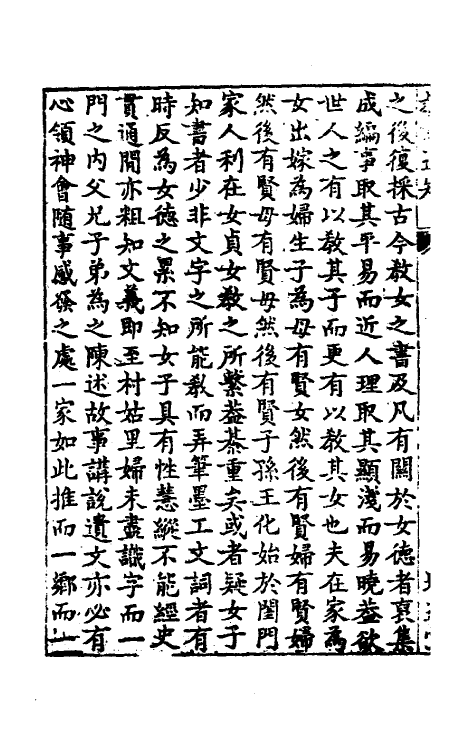 之後復採古今教女之書及凡有關於女德者裒集
成編事取其平易而近人理取其顯淺而易曉葢欲
世人之有以教其子而更有以教其女也夫在家爲
女出嫁爲婦生子爲母有賢女然後有賢婦有賢婦
然後有賢母有賢母然後有賢子孫王化始於閨門
家人利在女貞女教之所繫葢綦重矣或者疑女子
知書者少非文字之所能教而弄筆墨工文詞者有
時反為女德之累不知女子具有性慧縱不能經史
貫通間亦粗知文義即至村姑里婦未盡識字而一
門之內父兄子弟為之陳述故事講說遺文亦必有
心領神會隨事感發之處一家如此推而一鄉而